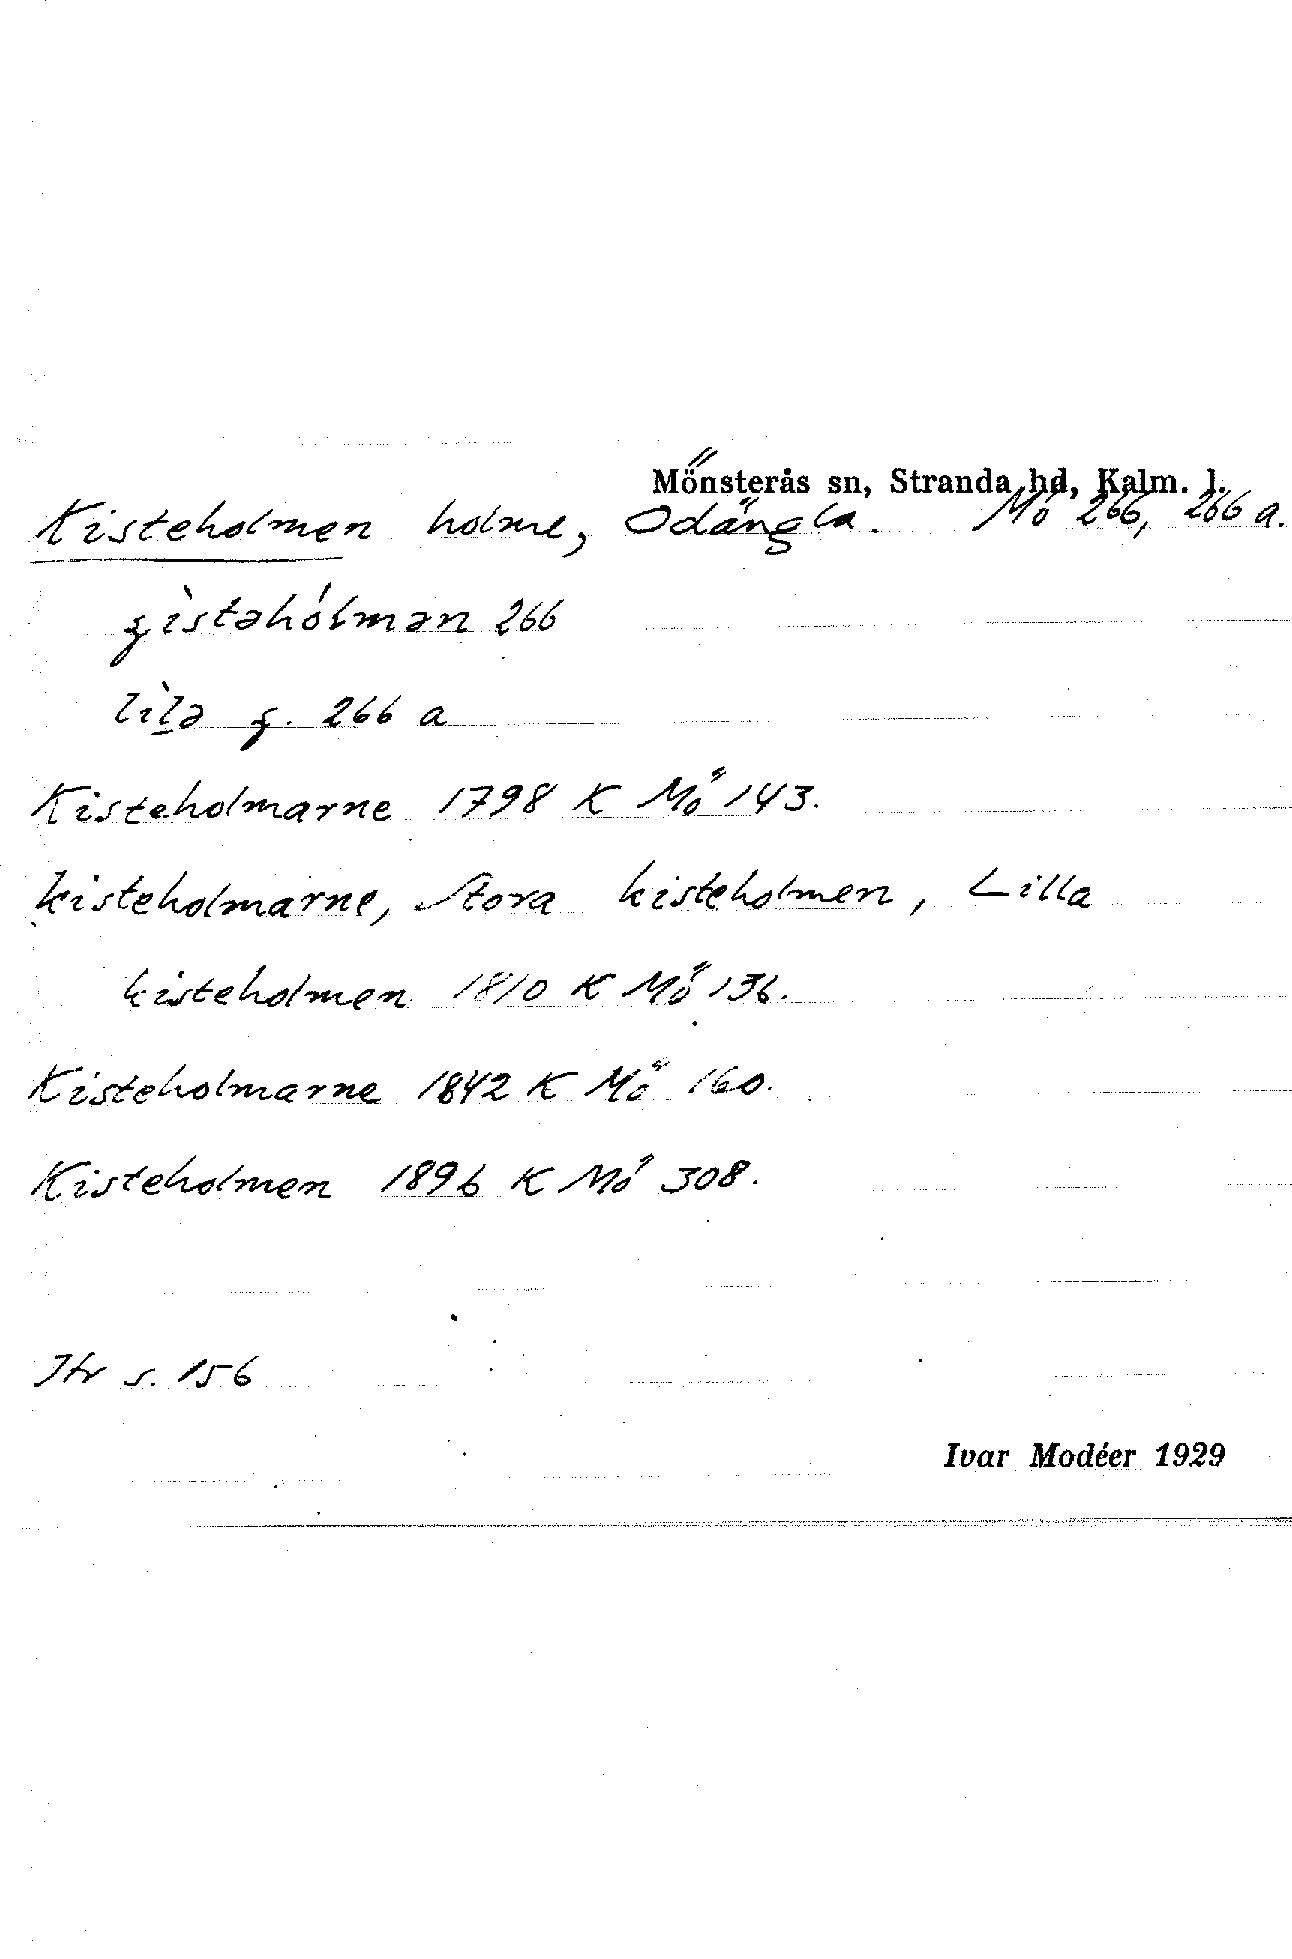 Mönsterås sn, Stranda hd, Kalm. l.
Kisteholmen holme, Ödängla. Mö 266, 266 a.
ʂìstəhólmən 266
lìlə ʂ. 266 a
Kisteholmarne 1798 K Mö 143.
kisteholmarne, Stora kisteholmen, Lilla
kisteholmen 1810 K Mö 136.
Kisteholmarne 1842 K Mö 160.
Kisteholmen 1896 K Mö 308.
Jfr s. 156
Ivar Modéer 1929